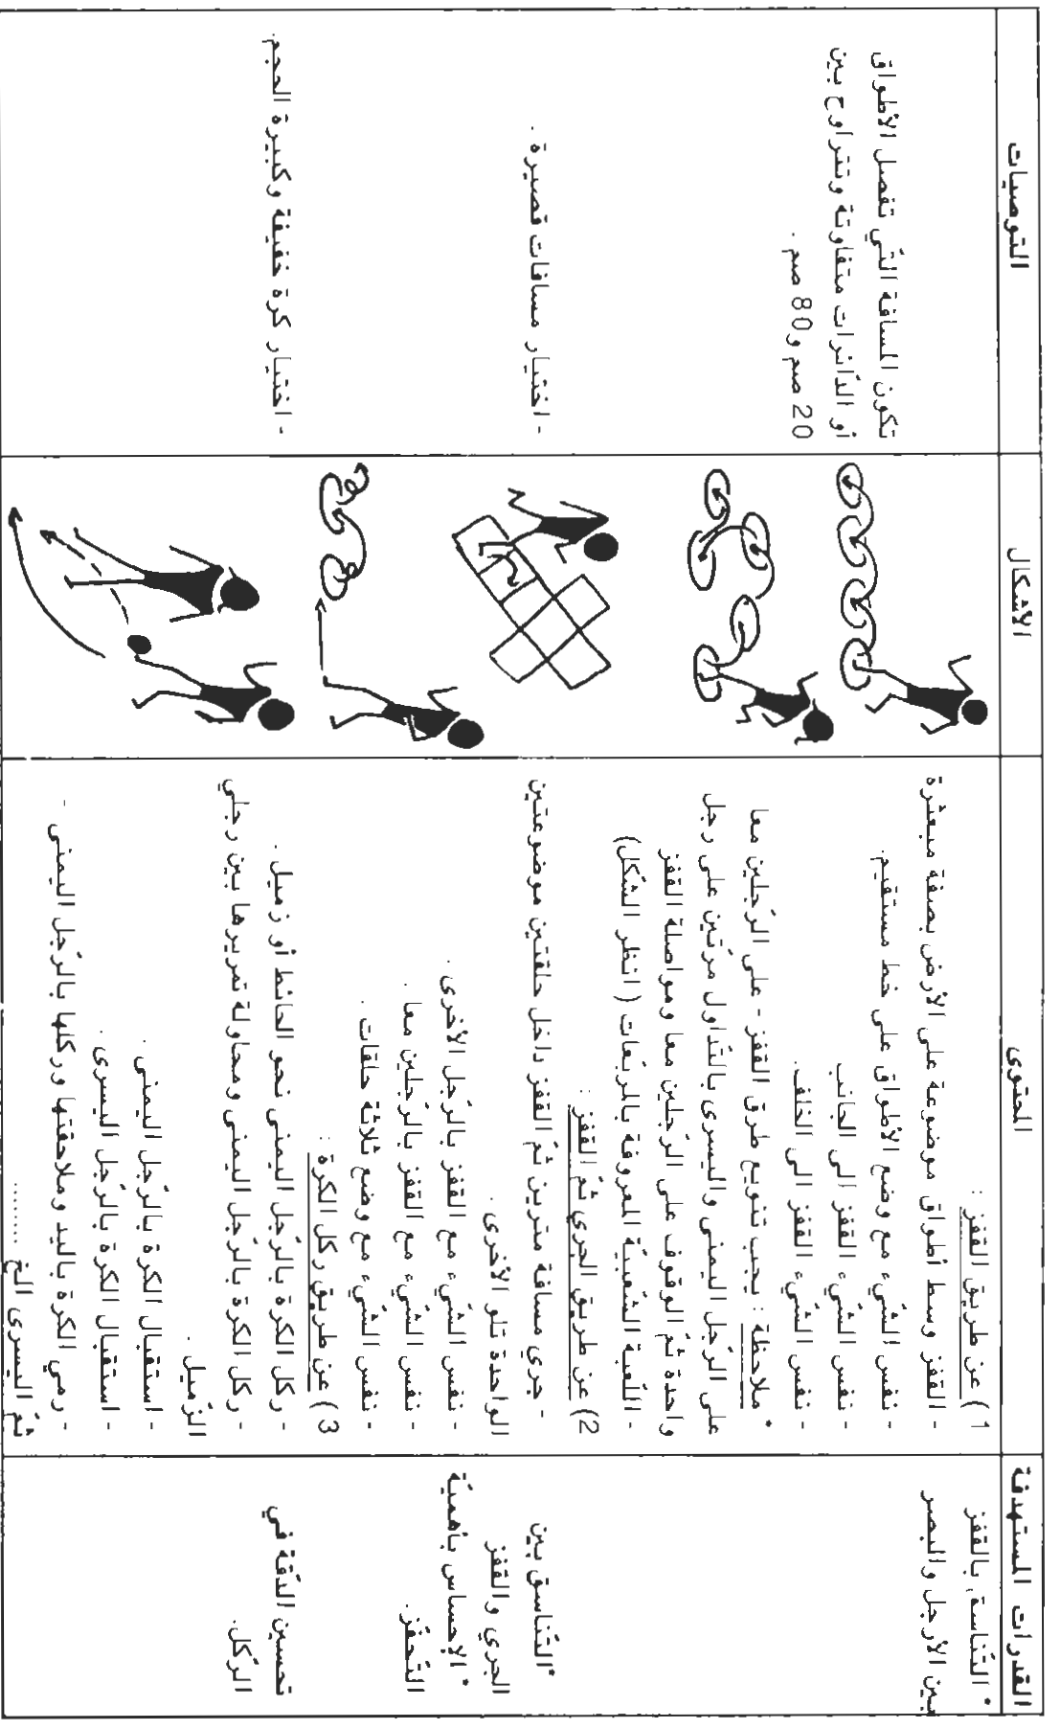 القدرات المستهدفة
المحتوى
الأشكال
التوصيات
• التّناسق بالقفز
بين الأرجل والبصر
•التّناسق بين
الجري والقفز
• الإحساس بأهميّة
التّحفّز.
تحسين الدّقة في
الرّكل.
1) عن طريق القفز :
- القفز وسط أطواق موضوعة على الأرض بصفة مبعثرة
- نفس الشّيء مع وضع الأطواق على خط مستقيم.
- نفس الشّيء القفز الى الجانب
- نفس الشّيء القفز الى الخلف.
* ملاحظة : يجب تنويع طرق القفز - على الرّجلين معا
على الرّجل اليمنى واليسرى بالتّداول مرّتين على رجل
واحدة ثمّ الوقوف على الرّجلين معا ومواصلة القفز
- اللّعبة الشّعبيّة المعروفة بالمربّعات ( انظر الشّكل)
2) عن طريق الجري ثمّ القفز :
- جري مسافة مترين ثمّ القفز داخل حلقتين موضوعتين
الواحدة تلو الأخرى .
- نفس الشّيء مع القفز بالرّجل الأخرى .
- نفس الشّيء مع القفز بالرّجلين معا .
- نفس الشّيء مع وضع ثلاثة حلقات .
3) عن طريق ركل الكرة :
- ركل الكرة بالرّجل اليمنى نحو الحائط أو زميل .
- ركل الكرة بالرّجل اليمنى ومحاولة تمريرها بين رجلي
الزّميل .
- استقبال الكرة بالرّجل اليمنى .
- استقبال الكرة بالرّجل اليسرى .
- رمي الكرة باليد وملاحقتها وركلها بالرّجل اليمنى -
ثمّ اليسرى الخ ........
تكون المسافة التّي تفصل الأطواق
أو الدّائرات متفاوتة وتتراوح بين
20 صم و 80 صم .
- اختيار مسافات قصيرة .
- اختيار كرة خفيفة وكبيرة الحجم.